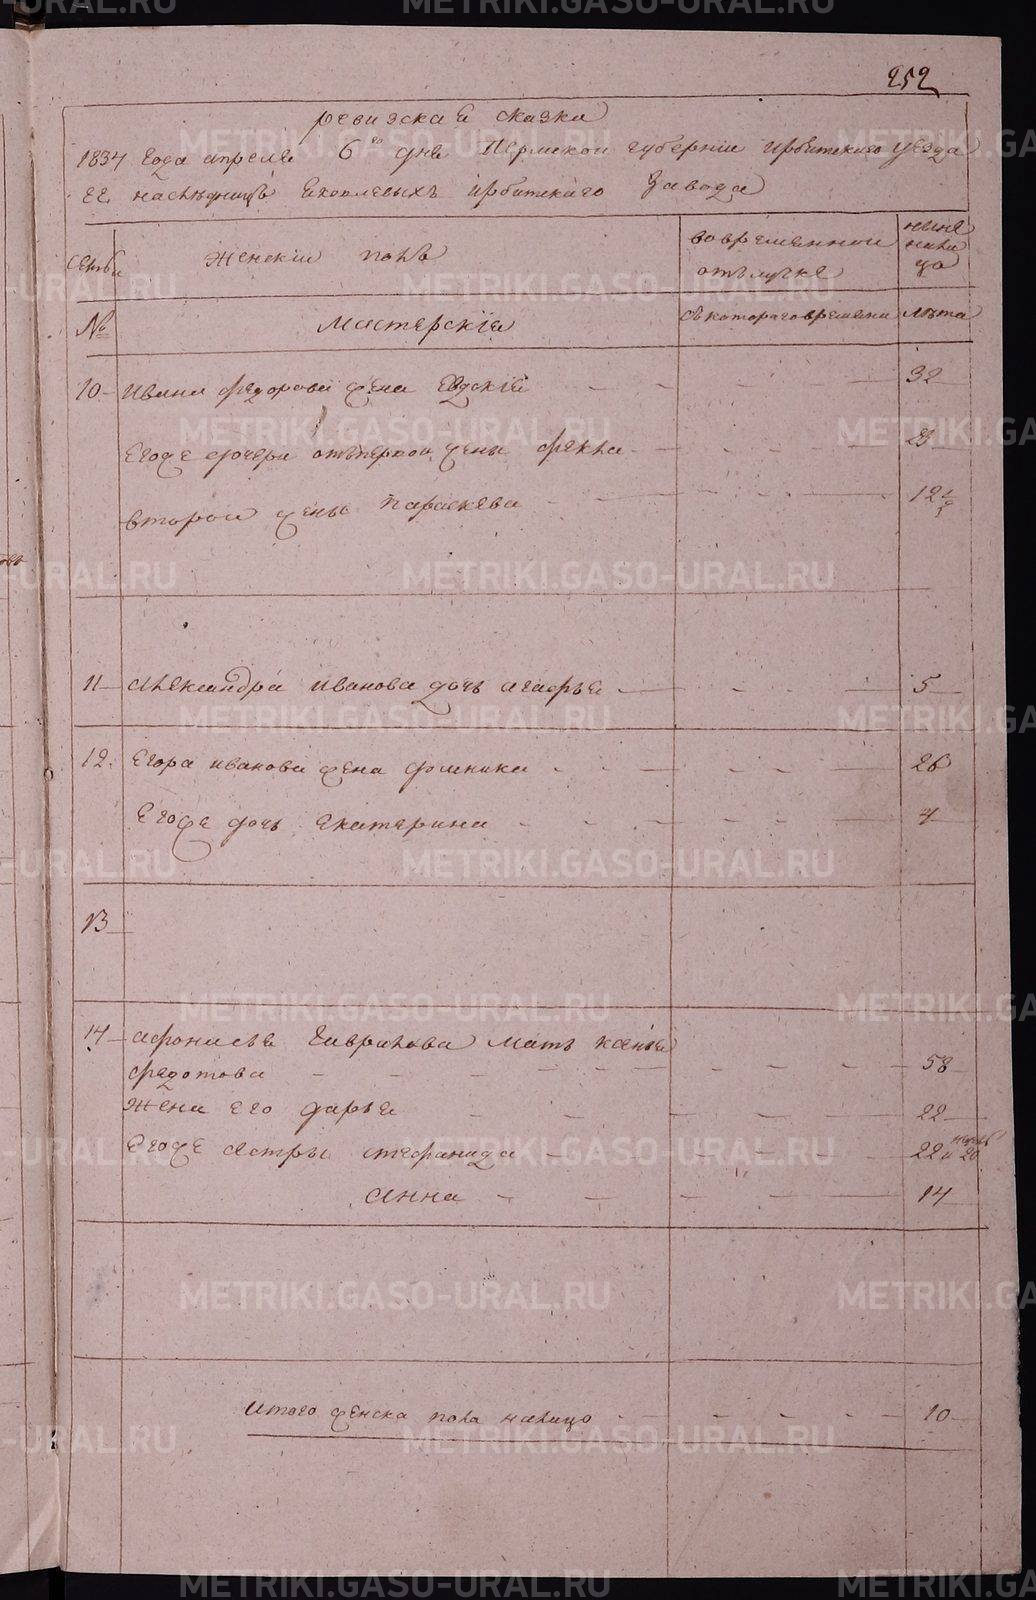 252
ревизская сказка
1834 года апреля 6го дня Пермской губернии ирбитского уезда
г.г. наследницъ яковлевыхъ ирбитскаго завода
семьи
женский полъ
во временной отълучке
ныне налицо
№
мастерские
съ котораго времени
лѣта
10 ивана федорова жена Евдокия 32
Егоже дочери отъ первой жены фекла
второй жены параскева 12 1/2
11 александра иванова дочь агафья 5
12. Егора иванова жена домника 26
Егоже дочь Екатерина 4
13
14 афонасья гаврилова мать ксенья
федотова 58
жена его дарья 22
Егоже сестры стефанида 22
анна 14
итого женска пола налицо 10
METRIKI.GASO-URAL.RU